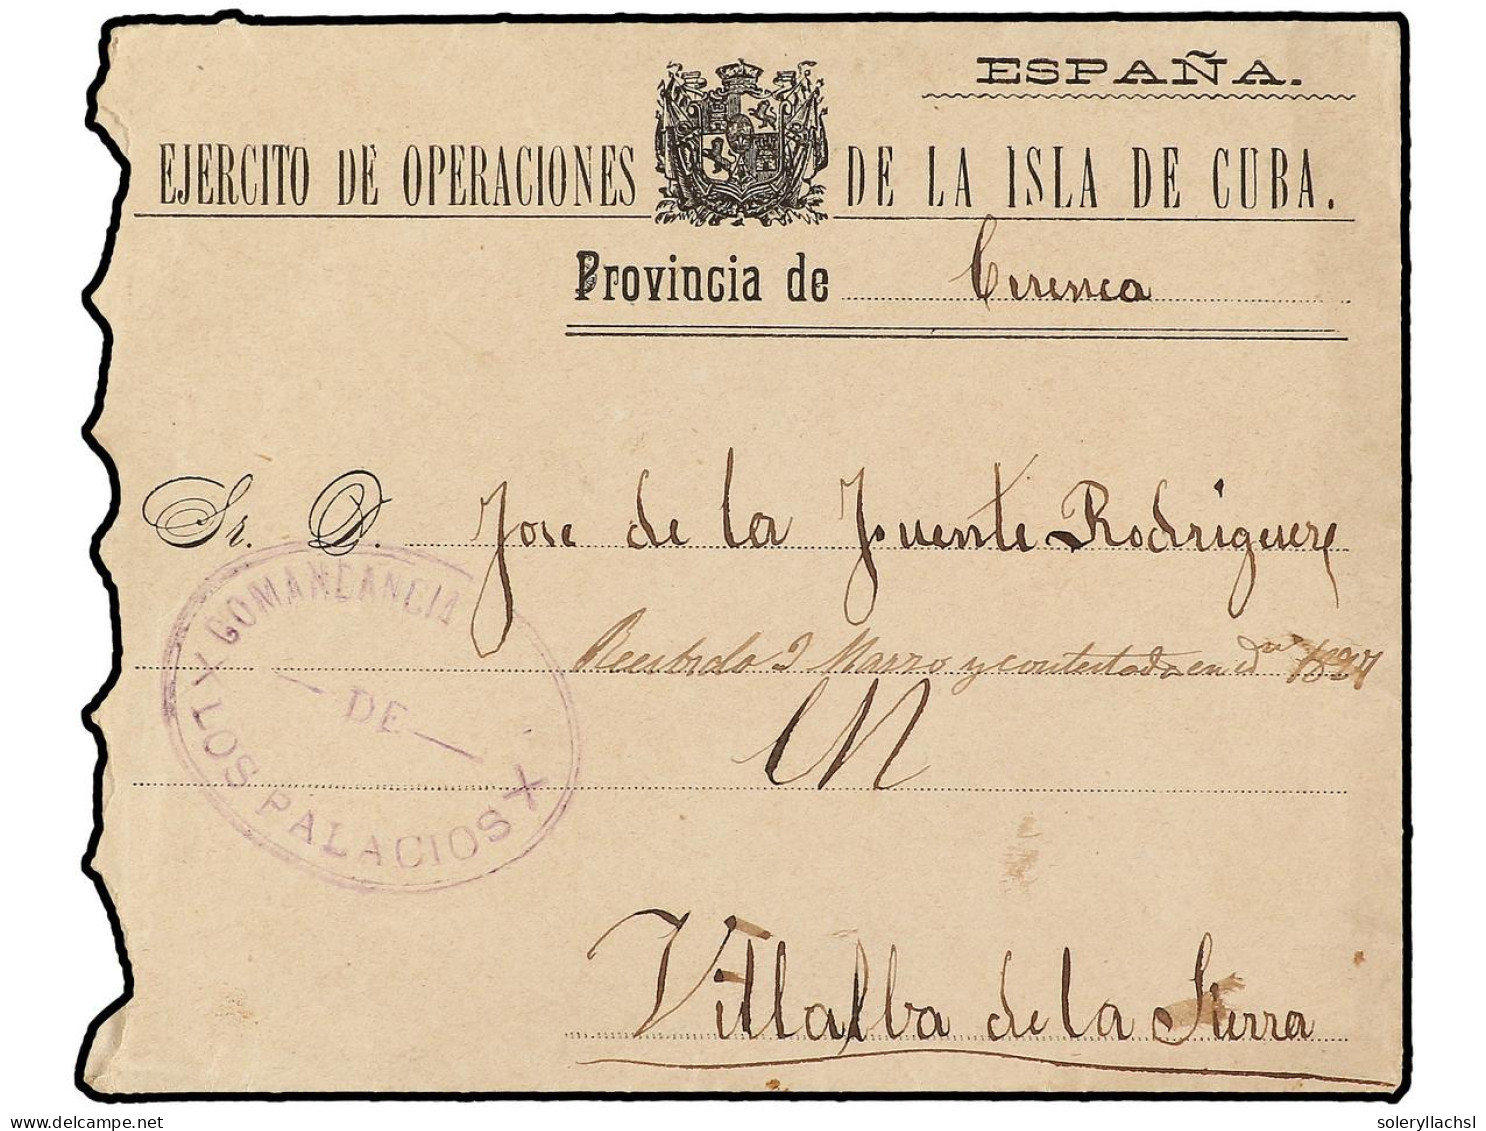 ESPAÑA.
EJERCITO DE OPERACIONES DE LA ISLA DE CUBA.
Provincia de Cuenca
Sr. D. Jose de la Fuente Rodriguez
COMANDANCIA
Recibida 2 Marzo y contestada en 1897
DE
en
LOS PALACIOS
Villalba de la Sierra
delcampe.net
soleryllachsl